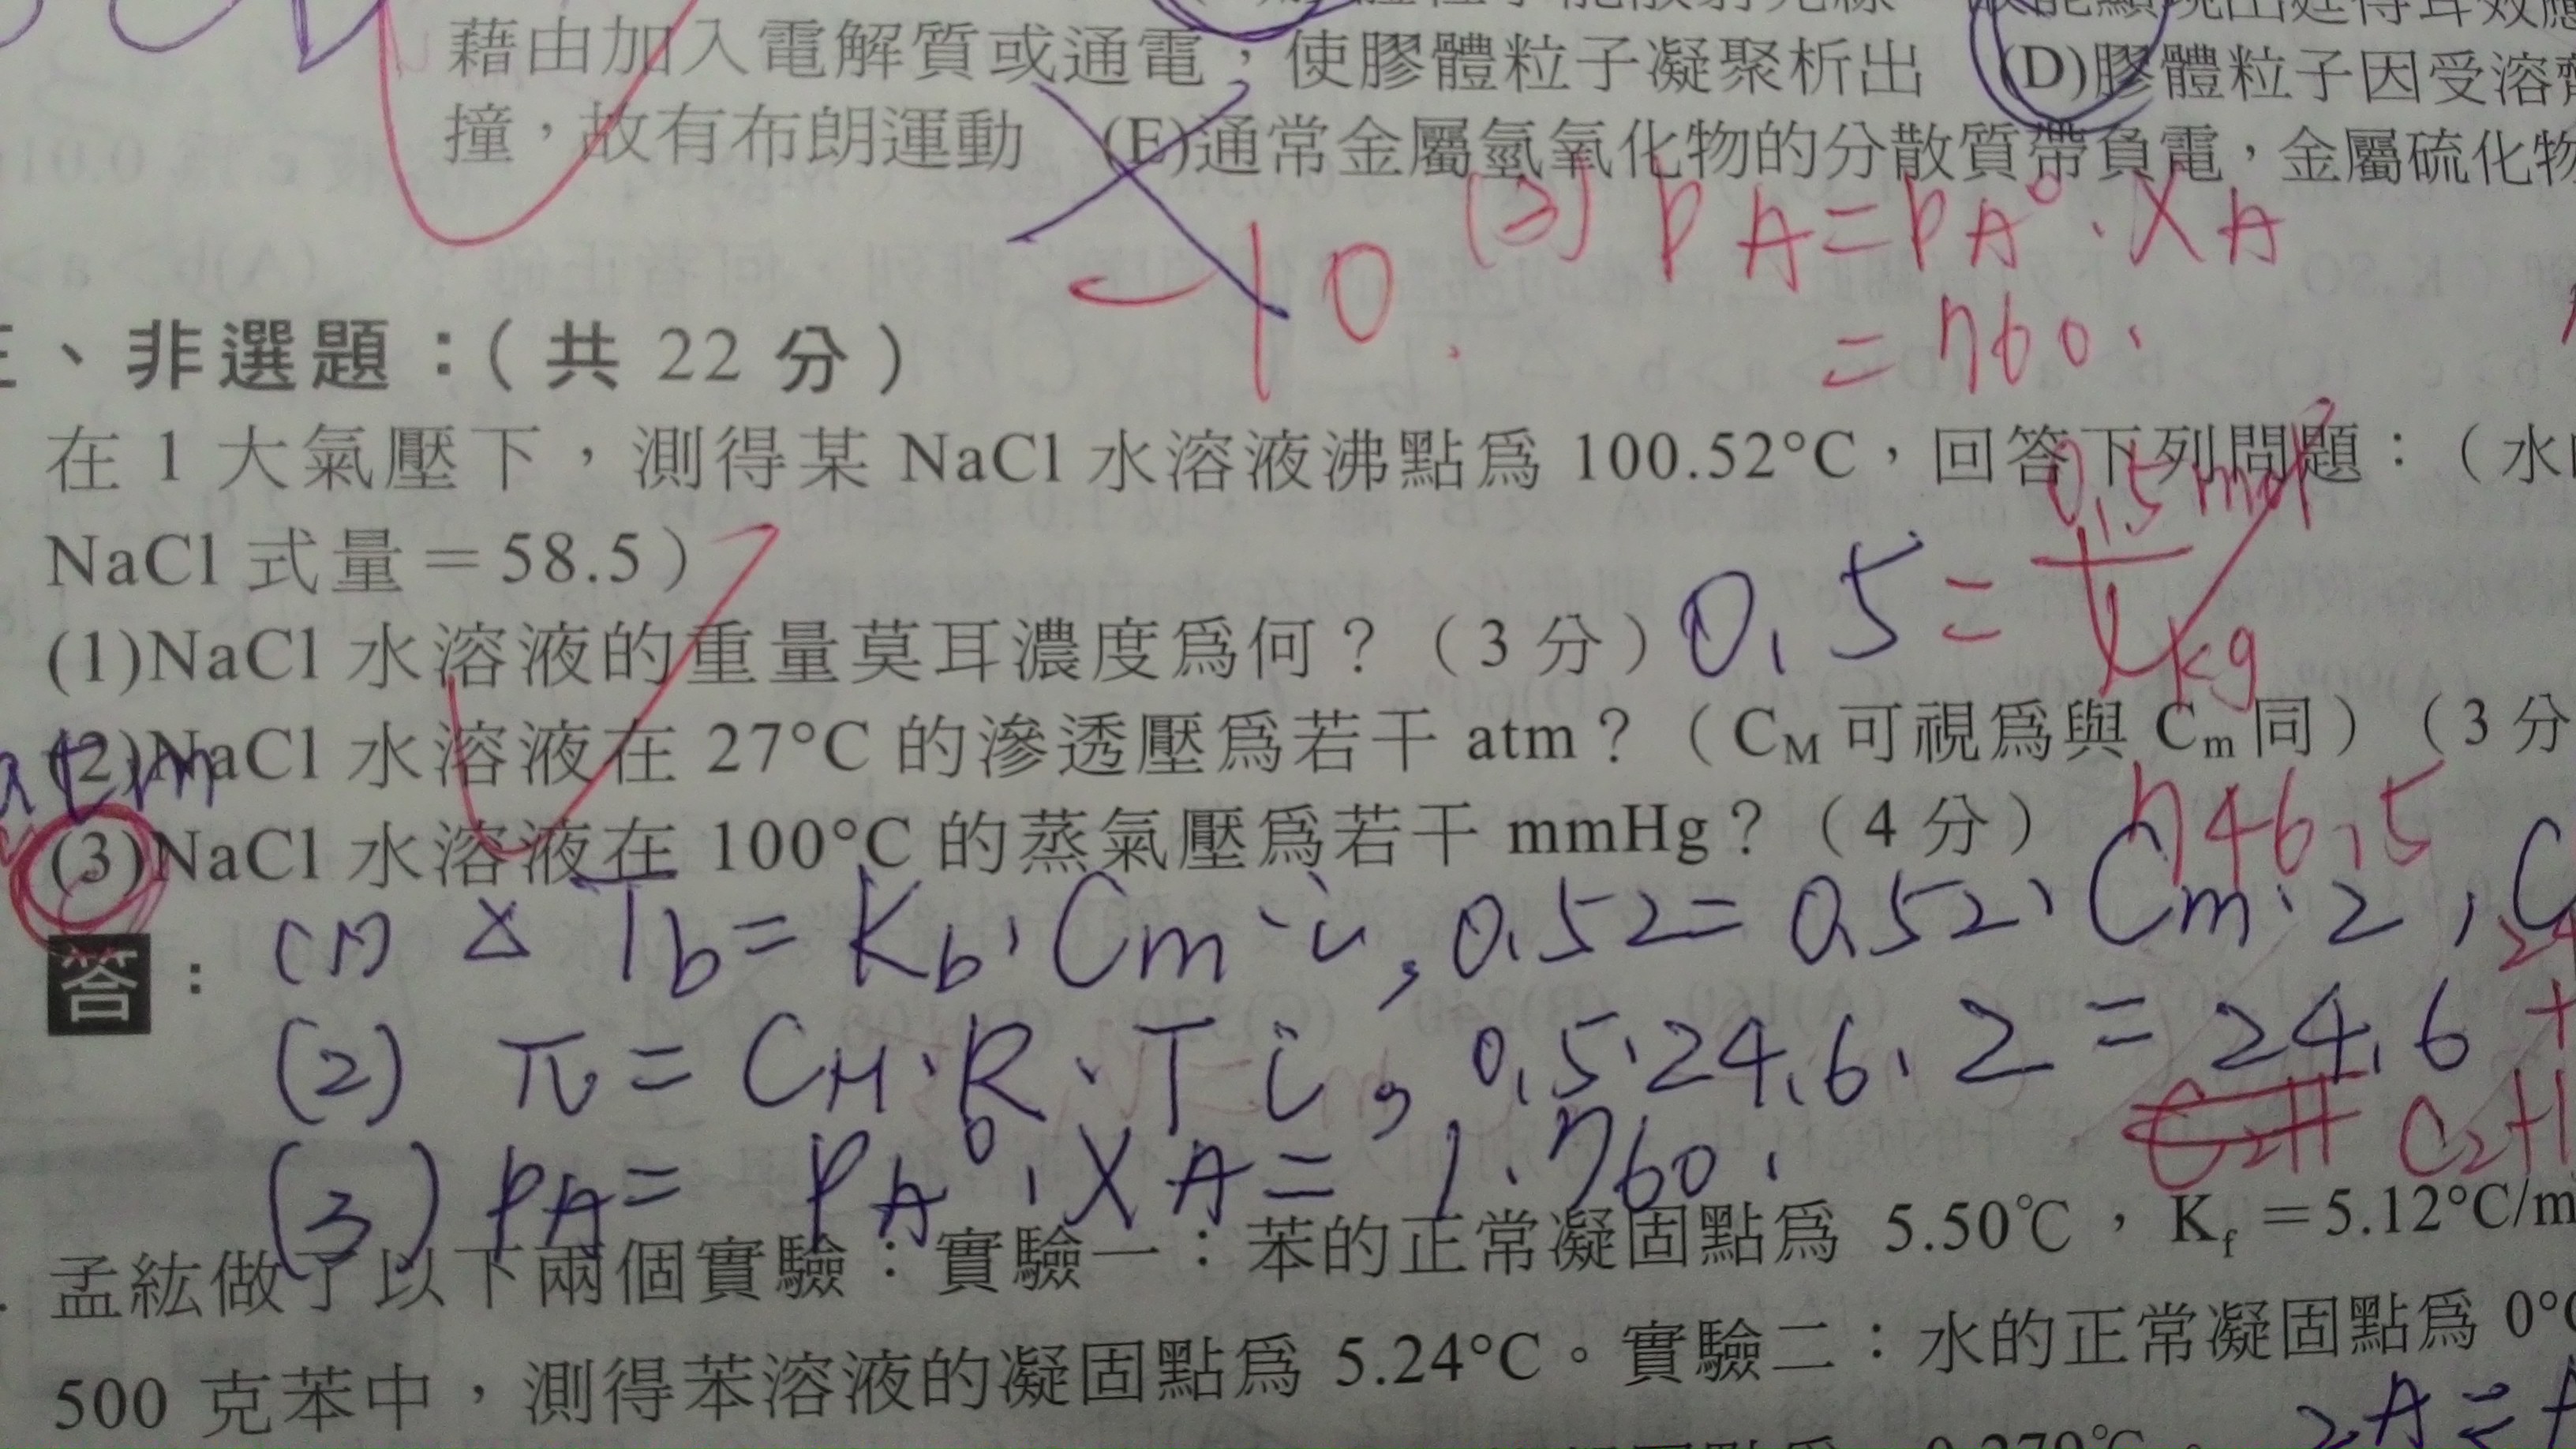 藉由加入電解質或通電，使膠體粒子凝聚析出 (D)膠體粒子因受溶
撞，故有布朗運動 (E)通常金屬氫氧化物的分散質帶負電，金屬硫化物
-10.
(3) PA=PA°·XA
=760·
、非選題：（共 22 分）
在 1 大氣壓下，測得某 NaCl 水溶液沸點爲 100.52°C，回答下列問題：（水
NaCl 式量＝58.5）
(1)NaCl 水溶液的重量莫耳濃度爲何？（3 分）0.5=
0.5 mol
1 kg
(2)NaCl 水溶液在 27°C 的滲透壓爲若干 atm？（CM 可視爲與 Cm 同）（3 分
atm
(3)NaCl 水溶液在 100°C 的蒸氣壓爲若干 mmHg？（4 分） 746.5
答：(1) ΔTb=Kb·Cm·i, 0.52=0.52·Cm·2, C
(2) π=CM·R·T i, 0.5·24.6·2=24.6
C2H
(3) PA= PA°·XA= 1·760·
孟紘做了以下兩個實驗：實驗一：苯的正常凝固點爲 5.50℃，Kf＝5.12°C/m
500 克苯中，測得苯溶液的凝固點爲 5.24°C。實驗二：水的正常凝固點爲 0°C
2A⇌